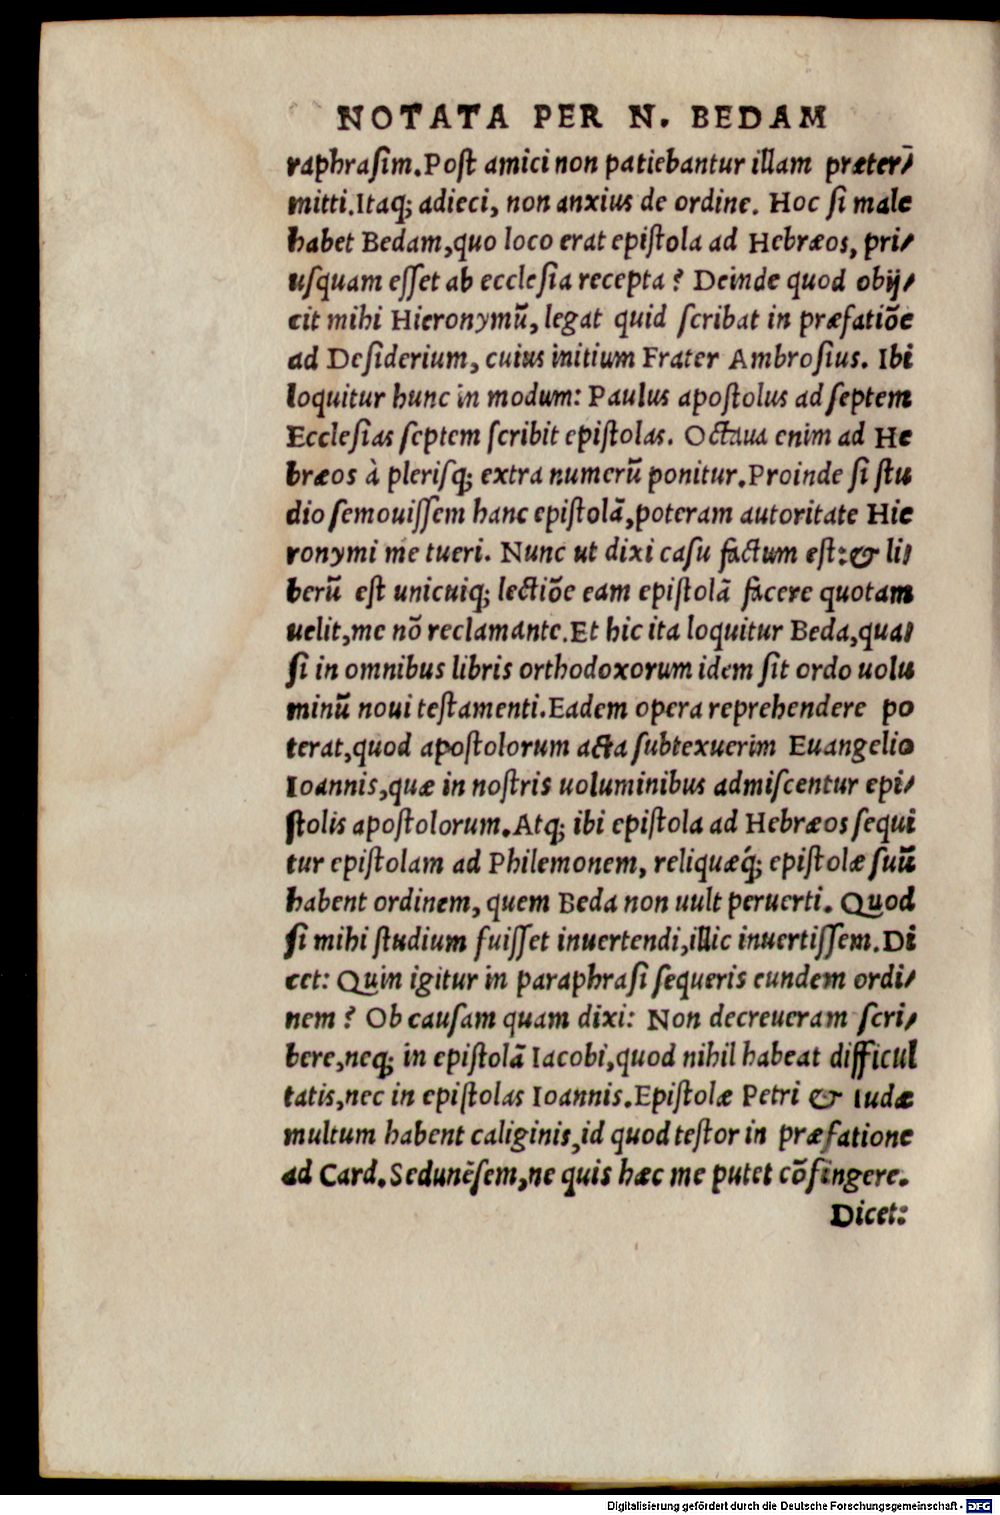 NOTATA PER N. BEDAM
raphraſim.Poſt amici non patiebantur illam præterī⸗
mitti.Itaq; adieci, non anxius de ordine. Hoc ſi male
habet Bedam,quo loco erat epiſtola ad Hebræos, pri⸗
uſquam eſſet ab eccleſia recepta? Deinde quod obij⸗
cit mihi Hieronymū, legat quid ſcribat in præfatiōe
ad Deſiderium, cuius initium Frater Ambroſius. Ibi
loquitur hunc in modum: Paulus apoſtolus ad ſeptem
Eccleſias ſeptem ſcribit epiſtolas. Octaua enim ad He
bræos à pleriſq; extra numerū ponitur.Proinde ſi ſtu
dio ſemouiſſem hanc epiſtolā,poteram autoritate Hie
ronymi me tueri. Nunc ut dixi caſu factum eſt:& li⸗
berū eſt unicuiq; lectiōe eam epiſtolā facere quotam
uelit,me nō reclamante.Et hic ita loquitur Beda,qua⸗
ſi in omnibus libris orthodoxorum idem ſit ordo uolu
minū noui teſtamenti.Eadem opera reprehendere po
terat,quod apoſtolorum acta ſubtexuerim Euangelio
Ioannis,quæ in noſtris uoluminibus admiſcentur epi⸗
ſtolis apoſtolorum.Atq; ibi epiſtola ad Hebræos ſequi
tur epiſtolam ad Philemonem, reliquæq́; epiſtolæ ſuū
habent ordinem, quem Beda non uult peruerti. Quod
ſi mihi ſtudium fuiſſet inuertendi,illic inuertiſſem.Di
cet: Quin igitur in paraphraſi ſequeris eundem ordi⸗
nem? Ob cauſam quam dixi: Non decreueram ſcri⸗
bere,neq; in epiſtolā Iacobi,quod nihil habeat difficul
tatis,nec in epiſtolas Ioannis.Epiſtolæ Petri & Iudæ
multum habent caliginis,id quod teſtor in præfatione
ad Card.Sedunēſem,ne quis hæc me putet cōfingere.
Dicet:
Digitalisierung gefördert durch die Deutsche Forschungsgemeinschaft - DFG